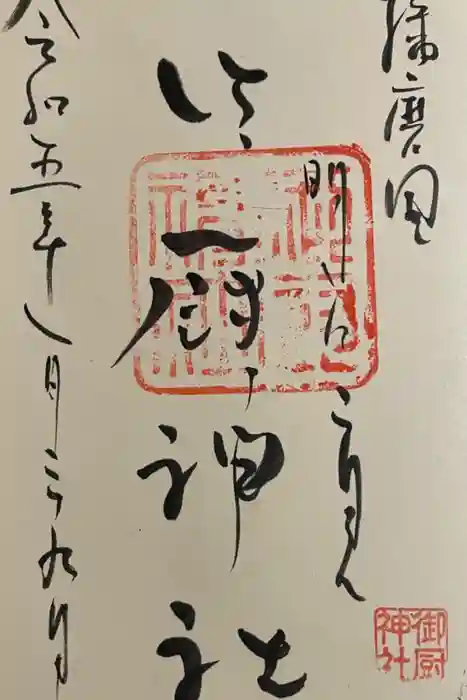 播磨国
明石二見
御厨神社
令和五年八月二九日
御厨
神社